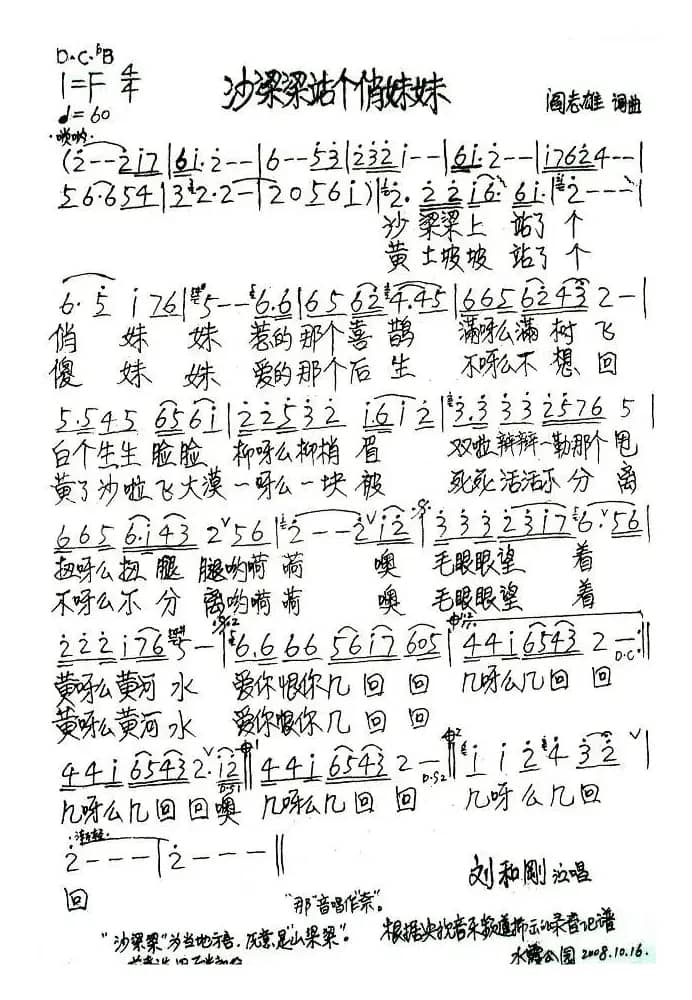 D.C.ᵇB
1=F 4/4
♩=60
沙梁梁站个俏妹妹
阎志雄 词曲
唢呐
(2--217|61·2--|6--53|2321--|61·2--|17624--|
56·6654|32·2--|20561)|2·2216·61·|2---|
沙梁梁上 站了个
黄土坡坡 站了个
6·5 176|5--6·6|65624·45|66562432-|
俏妹妹惹的那个喜鹊 满呀么满树飞
傻妹妹爱的那个后生 不呀么不想回
5·5456561|225321612|3·33325765|
白个生生脸脸 柳呀么柳梢眉 双啦辫辫一勒那个甩
黄了沙啦飞大漠 一呀么一块被 死死活活不分离
6656·143256|2--212|33323176·56|
扭呀么扭腿腿哟嗬嗬 噢 毛眼眼望着
不呀么不分离哟嗬嗬 噢 毛眼眼望着
2221765-|6·6665617605|44165432-|D.C.
黄呀么黄河水 爱你恨你几回回 几呀么几回回
黄呀么黄河水 爱你恨你几回回
44165432·12|D.S1 44165432-|D.S2 112432|
几呀么几回回噢 几呀么几回回 几呀么几回
2---|2---||
回
刘和刚 演唱
"那"音唱作"奈"。
"沙梁梁"为当地方言,原意是"山梁梁"。
根据央视音乐频道播示的录音记谱
水露公园2008.10.16.